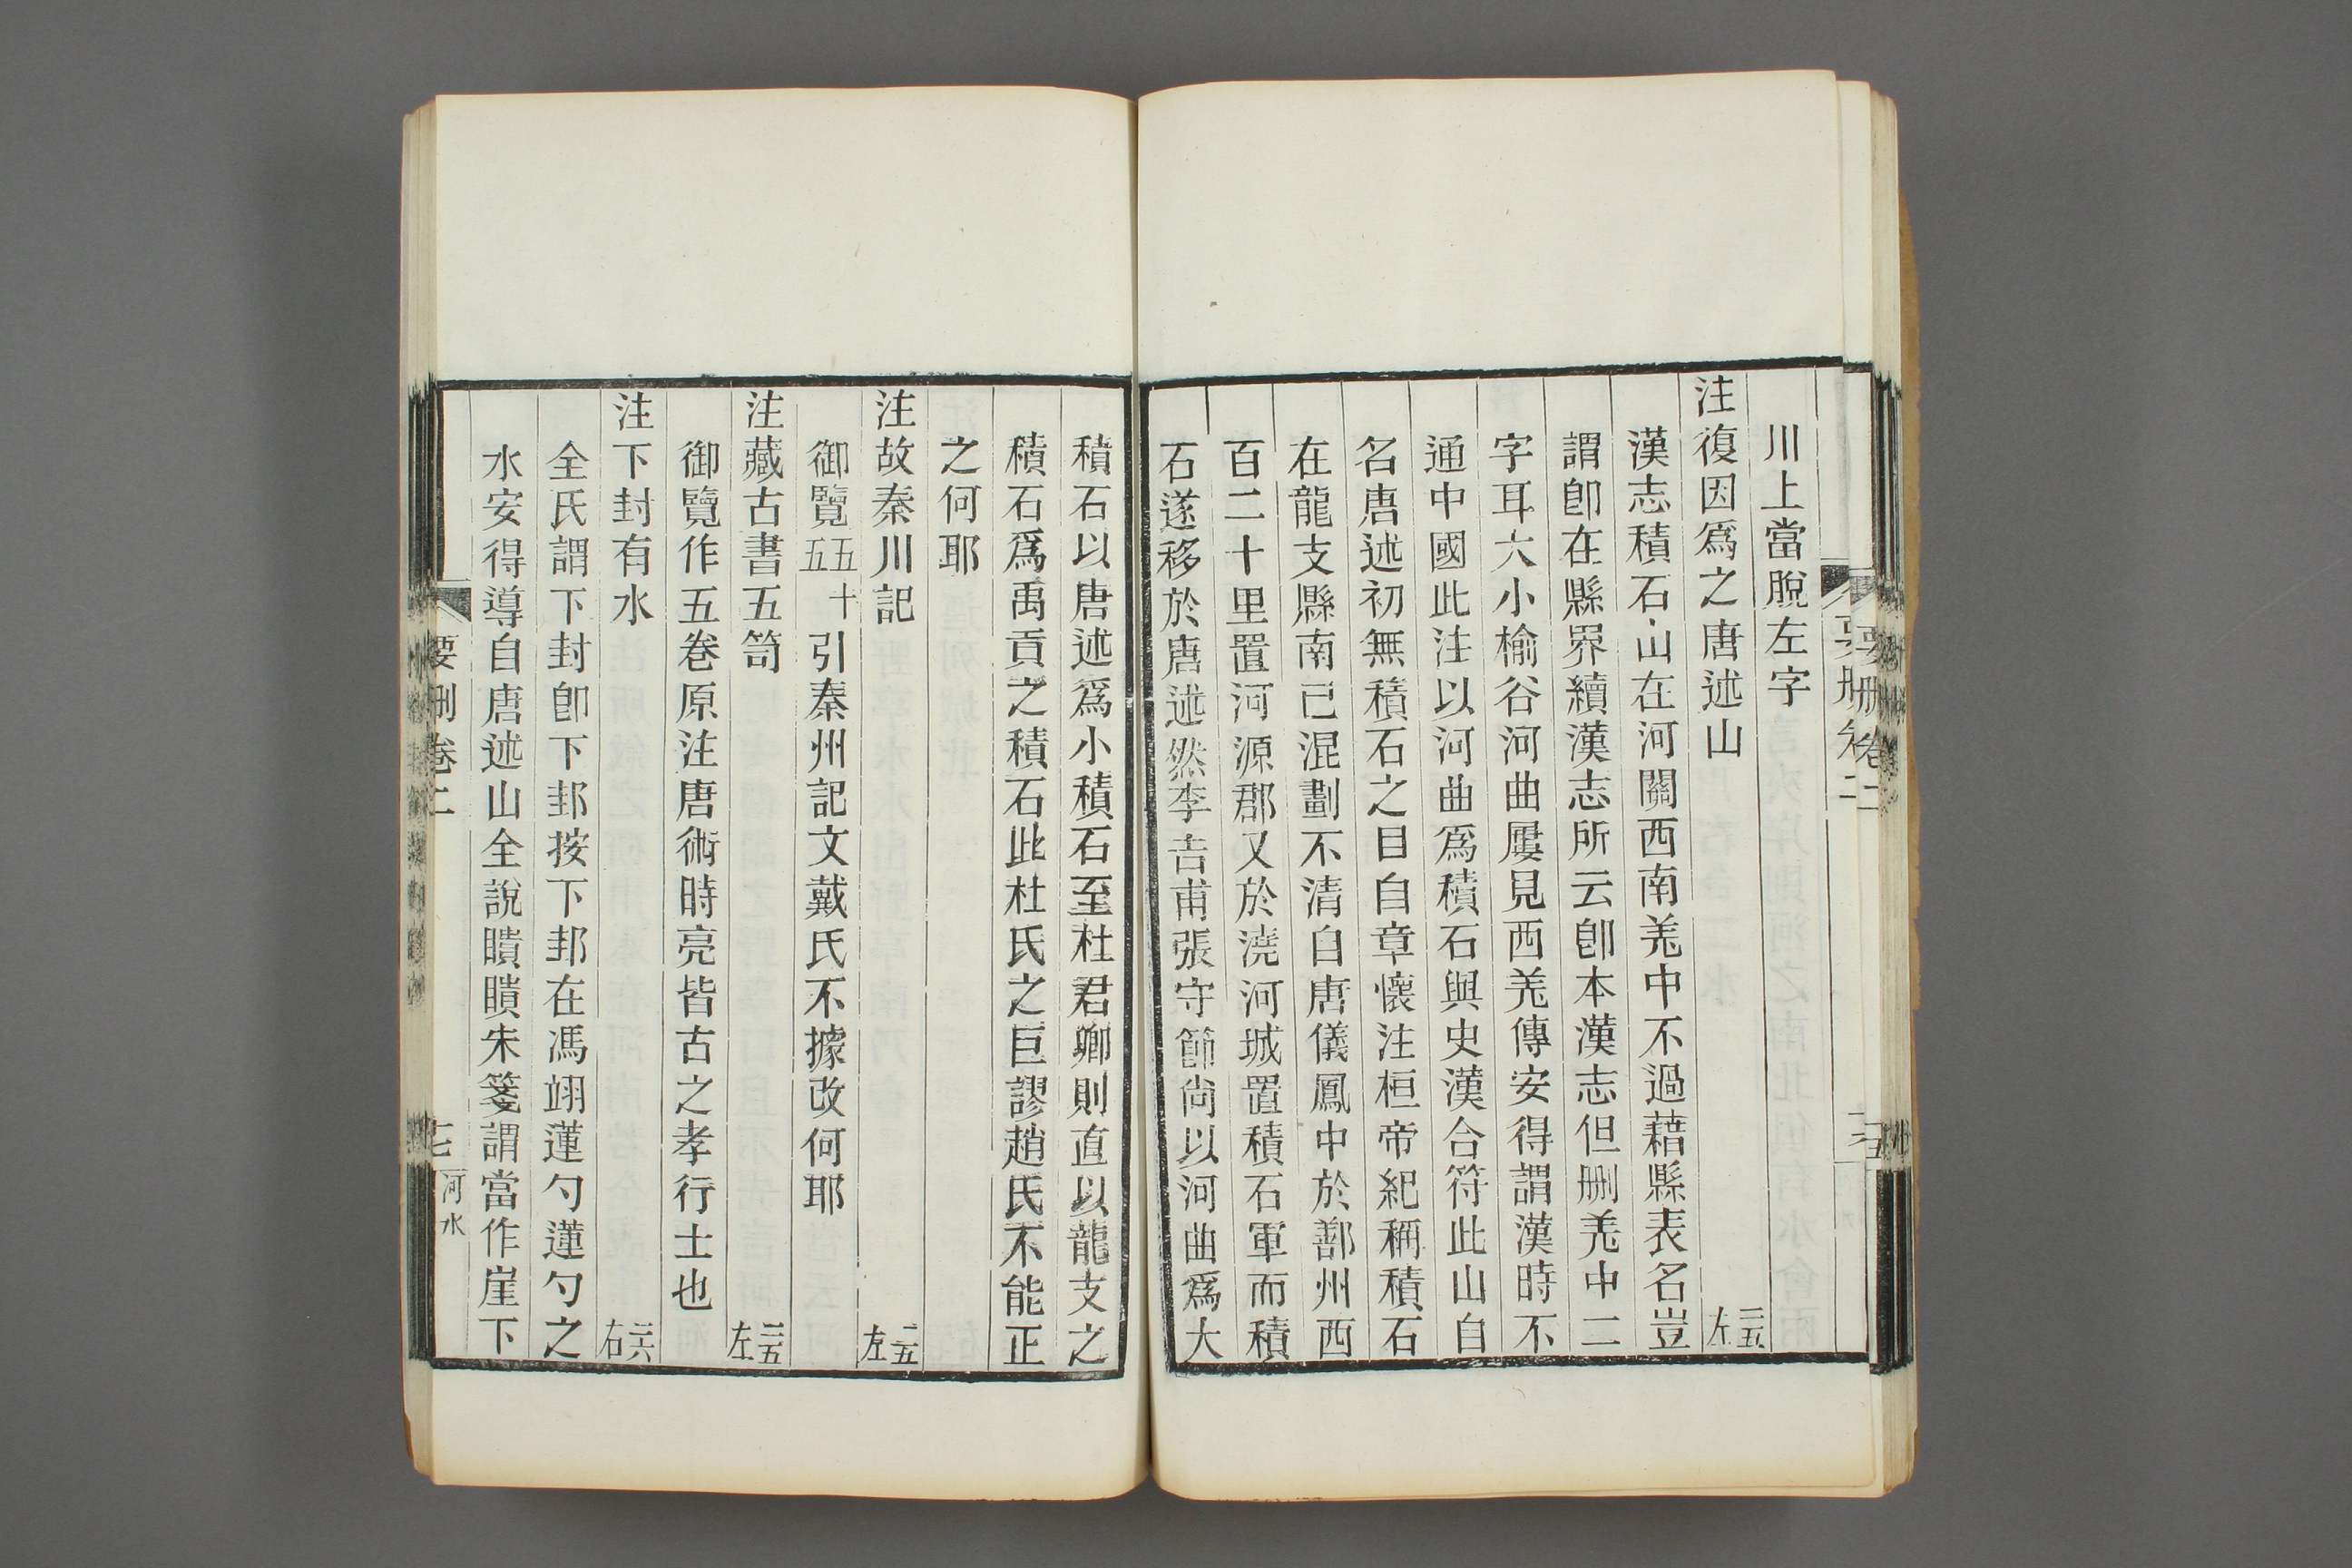 川上當脫左字
注復因爲之唐述山 二五左
漢志積石山在河關西南羌中不過藉縣表名豈
謂卽在縣界續漢志所云卽本漢志但刪羌中二
字耳大小榆谷河曲屢見西羌傳安得謂漢時不
通中國此注以河曲爲積石與史漢合符此山自
名唐述初無積石之目自章懷注桓帝紀稱積石
在龍支縣南已混劃不清自唐儀鳳中於鄯州西
百二十里置河源郡又於澆河城置積石軍而積
石遂移於唐述然李吉甫張守節尚以河曲爲大
積石以唐述爲小積石至杜君卿則直以龍支之
積石爲禹貢之積石此杜氏之巨謬趙氏不能正
之何耶
注故秦川記 二五左
御覽五十五引秦州記文戴氏不據改何耶
注藏古書五笥 二五左
御覽作五卷原注唐術時亮皆古之孝行士也
注下封有水 二六右
全氏謂下封卽下邽按下邽在馮翊蓮勺蓮勺之
水安得導自唐述山全說瞶瞶朱箋謂當作崖下
要刪卷二
七
河水